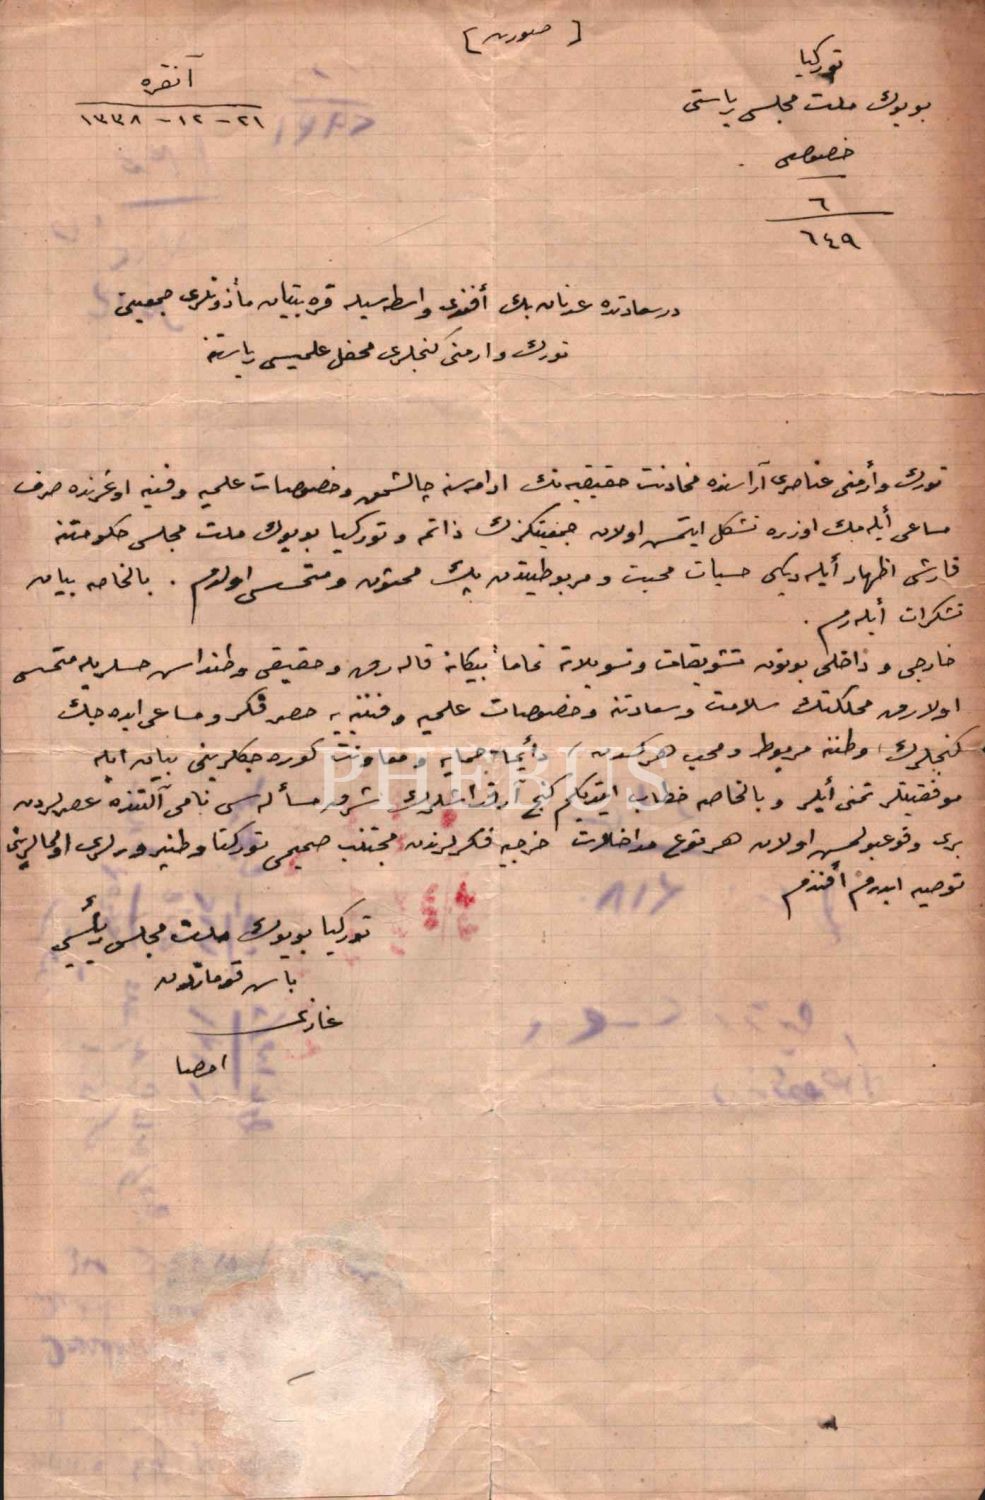 [ صورت ]
توركيا
بويوك ملت مجلسى رياستى
خصوصى
٦
٦٤٩
آنقره
٢١ - ١٢ - ١٣٣٨
درسعادتده عدنان بك أفندى واسطه سيله قره بتيان مأذونلرى جمعيتى
تورك وارمنى كنجلرى محفل علميسى رياستنه
تورك وأرمنى عناصرى آراسنده مخادنت حقيقيه نك ادامه سنه چالشمق وخصوصات علميه وفنيه اوغرنده صرف
مساعى أيله مك اوزره تشكل ايتمش اولان جمعيتكزك ذاتمه و توركيا بويوك ملت مجلسى حكومتنه
قارشى اظهار أيله ديكى حسيات محبت و مربوطيتدن پك ممنون و متحسس اولدم . بالخاصه بيان
تشكرات أيله رم .
خارجى و داخلى بوتون تشويقات وتسويلاته تماماً بيكانه قاله رق و حقيقى وطنداش حسلريله متحسس
اولارق مملكتك سلامت وسعادتنه وخصوصات علميه وفنيه يه حصر فكر ومساعى ايده جك
كنجلرك وطننه مربوط ومحب هركسدن دأيما حمايه و معاونت كوره جكلرينى بيان ايله
موفقيتلر تمنى أيلر و بالخاصه خطاب ايتديكم كنج آرقداشلرك شرق مسأله سى نامى آلتنده عصرلردن
برى وقوعبولمش اولان هر نوع مداخلات خرجيه فكرلرندن مجتنب صميمى توركيا وطنپرورلرى اولمالرينى
توصيه ايدرم أفندم
توركيا بويوك ملت مجلسى رئيسى
باش قوماندان
غازى
امضا
PHEBUS